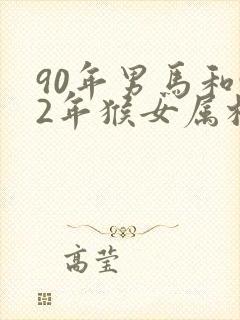 90年男馬和
2年猴女属
高莹